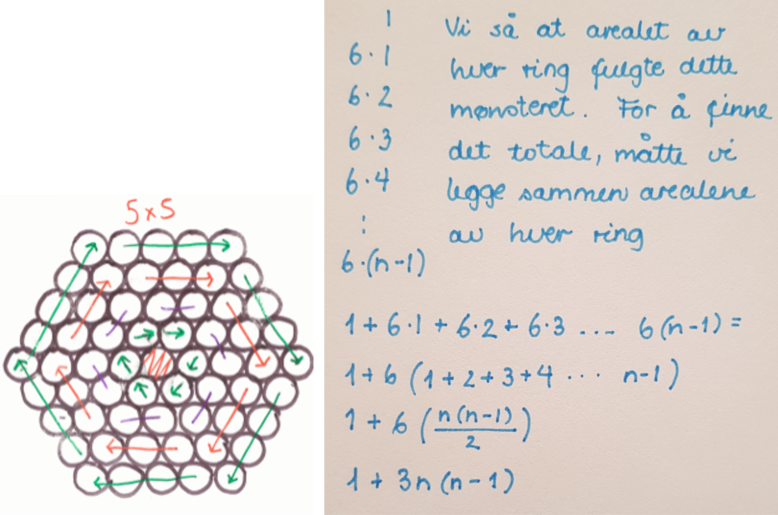 5×5
1
6·1
6·2
6·3
6·4
⋮
6·(n-1)
Vi så at arealet av
hver ring fulgte dette
mønsteret. For å finne
det totale, måtte vi
legge sammen arealene
av hver ring
1 + 6·1 + 6·2 + 6·3 .... 6(n-1) =
1 + 6 (1 + 2 + 3 + 4 ... n-1)
1 + 6 (n(n-1)/2)
1 + 3n (n-1)